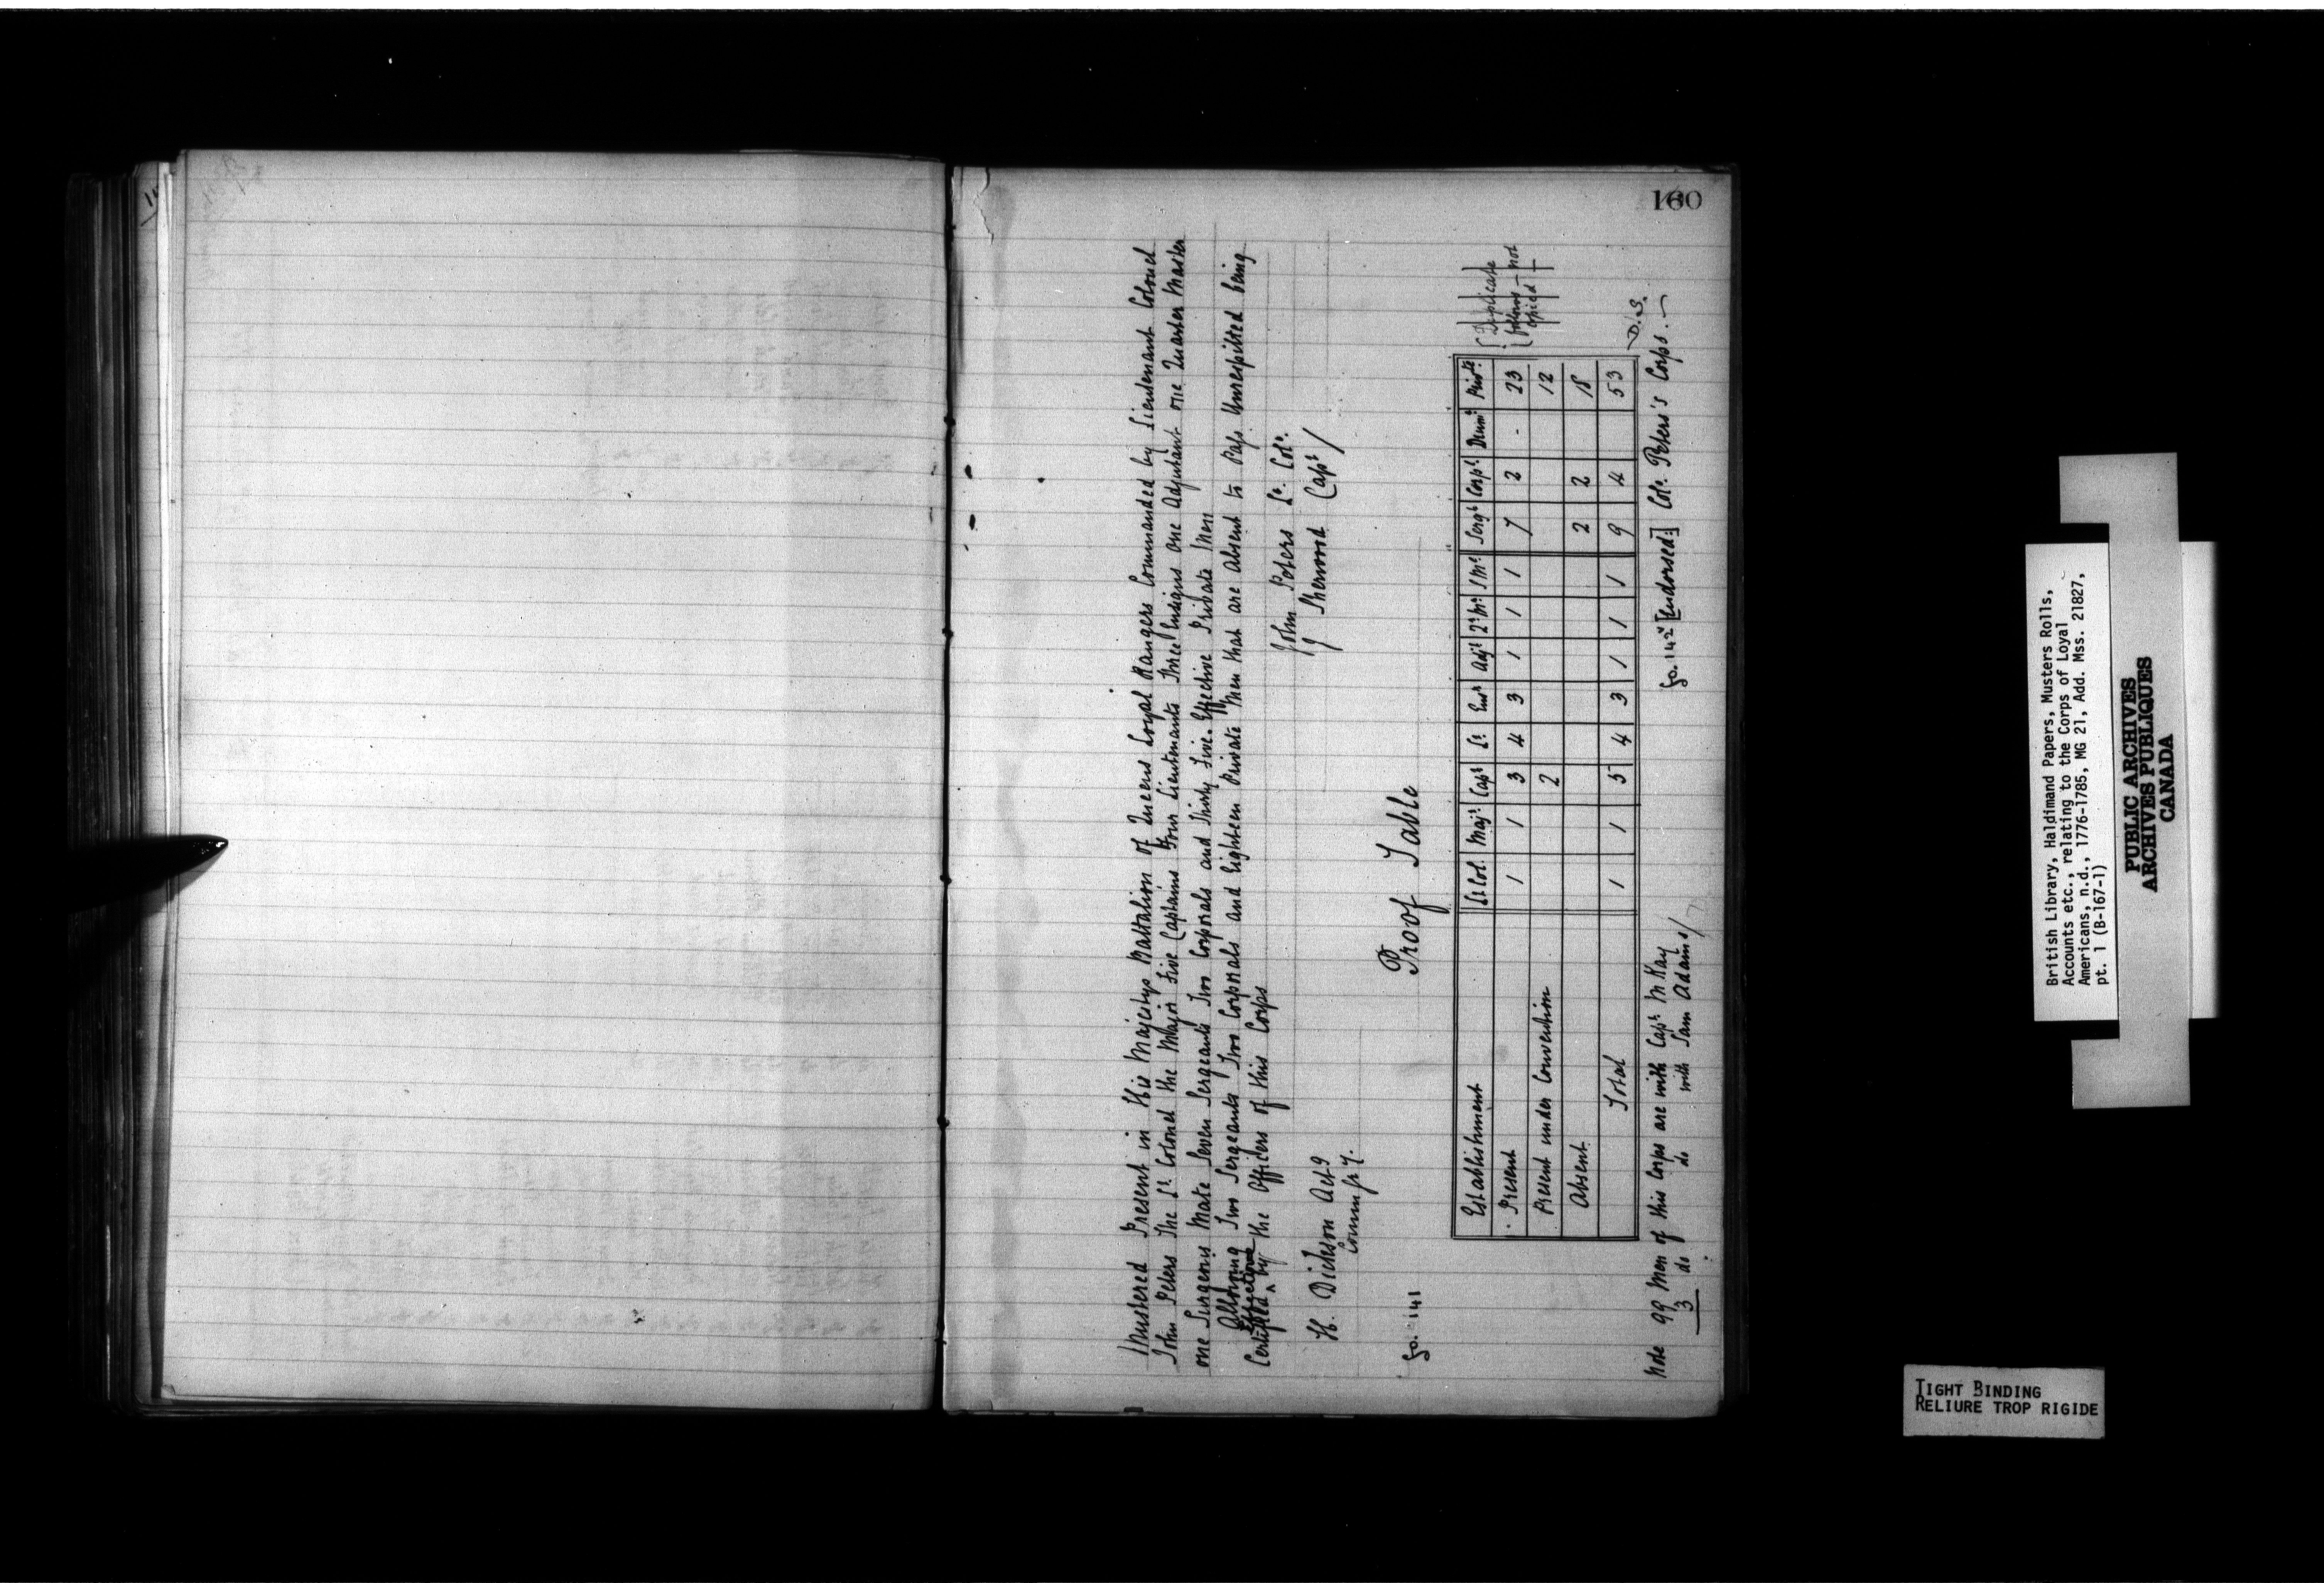 160
Mustered Present in His Majestys Battalion of Queens Loyal Rangers Commanded by Lieutenant Colonel
John Peters The Lt Colonel the Major Five Captains Four Lieutenants Three Ensigns one Adjutant one Quarter Master
one Surgeons Mate Seven Sergeants Two Corporals and Thirty Five Effective Private Men
Allowing Two Sergeants Two Corporals and Eighteen Private Men that are Absent to Pass Unrespitted being
Certified Effective by the Officers of this Corps
John Peters Lt. Col.
J Sherwood Capt
H. Dickson Actg
Commsy.
fo. 141
Proof Table
Establishment Lt Col. Maj. Capt Lt Ensn Adjt Qr Mr S Mt Sergt Corpl Drums Privts
Present 1 1 3 4 3 1 1 1 7 2 - 23
Present under Convention 2 12
Absent 2 2 18
Total 1 1 5 4 3 1 1 1 9 4 53
Duplicate
follows - not
copied
D.S.
Note 99 Men of this Corps are with Capt McKay
3 do do with Sam Adams
fo. 142v [Endorsed] Col. Peters's Corps.
British Library, Haldimand Papers, Musters Rolls,
Accounts etc., relating to the Corps of Loyal
Americans, n.d., 1776-1785, MG 21, Add. Mss. 21827,
pt. 1 (B-167-1)
PUBLIC ARCHIVES
ARCHIVES PUBLIQUES
CANADA
TIGHT BINDING
RELIURE TROP RIGIDE